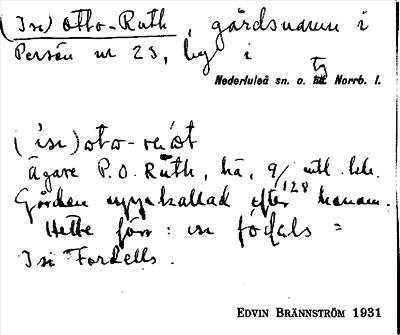 (Ise) Otto-Ruth, gårdsnamn i
Persön nr 23, by i
Nederluleå sn. o. tg Norrb. l.
(ise) oto-
Ägare P.O. Ruth, hä, 9/128 mtl.
Gården uppkallad efter honom.
Hette förr: ise
Ise Fordells.
EDVIN BRÄNNSTRÖM 1931